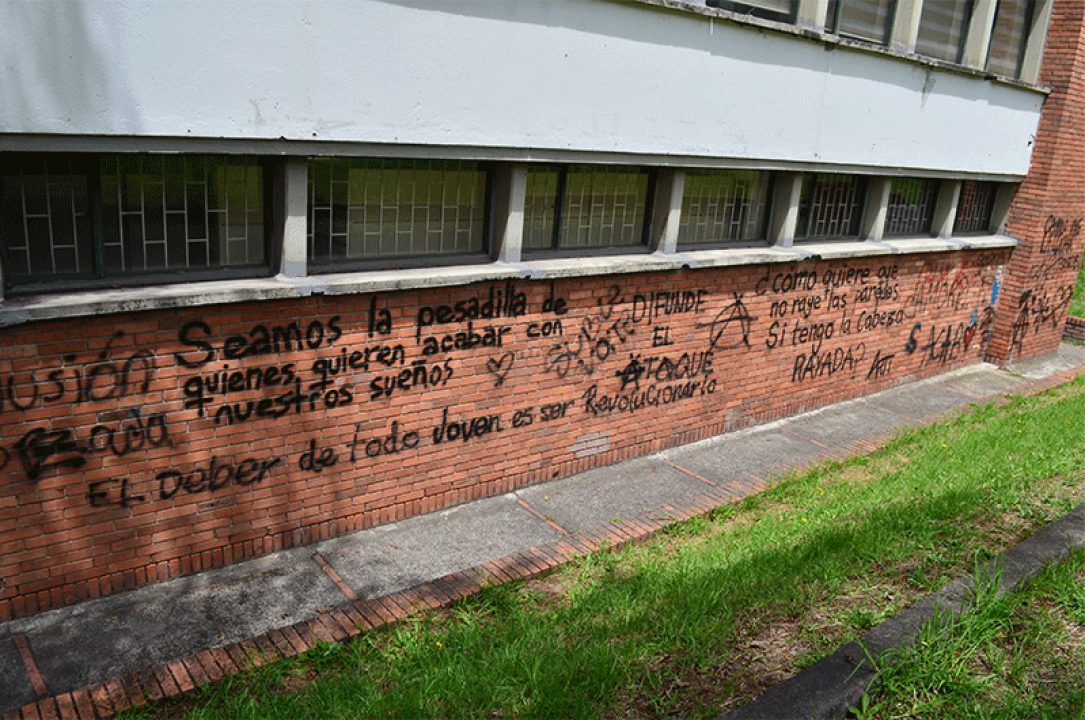 usión
Seamos la pesadilla de
quienes quieren acabar con
nuestros sueños
EL Deber de todo Joven es ser Revolucionario
DIFUNDE
EL
ATAQUE
¿como quiere que
no raye las paredes
Si tengo la Cabeza
RAYADA?